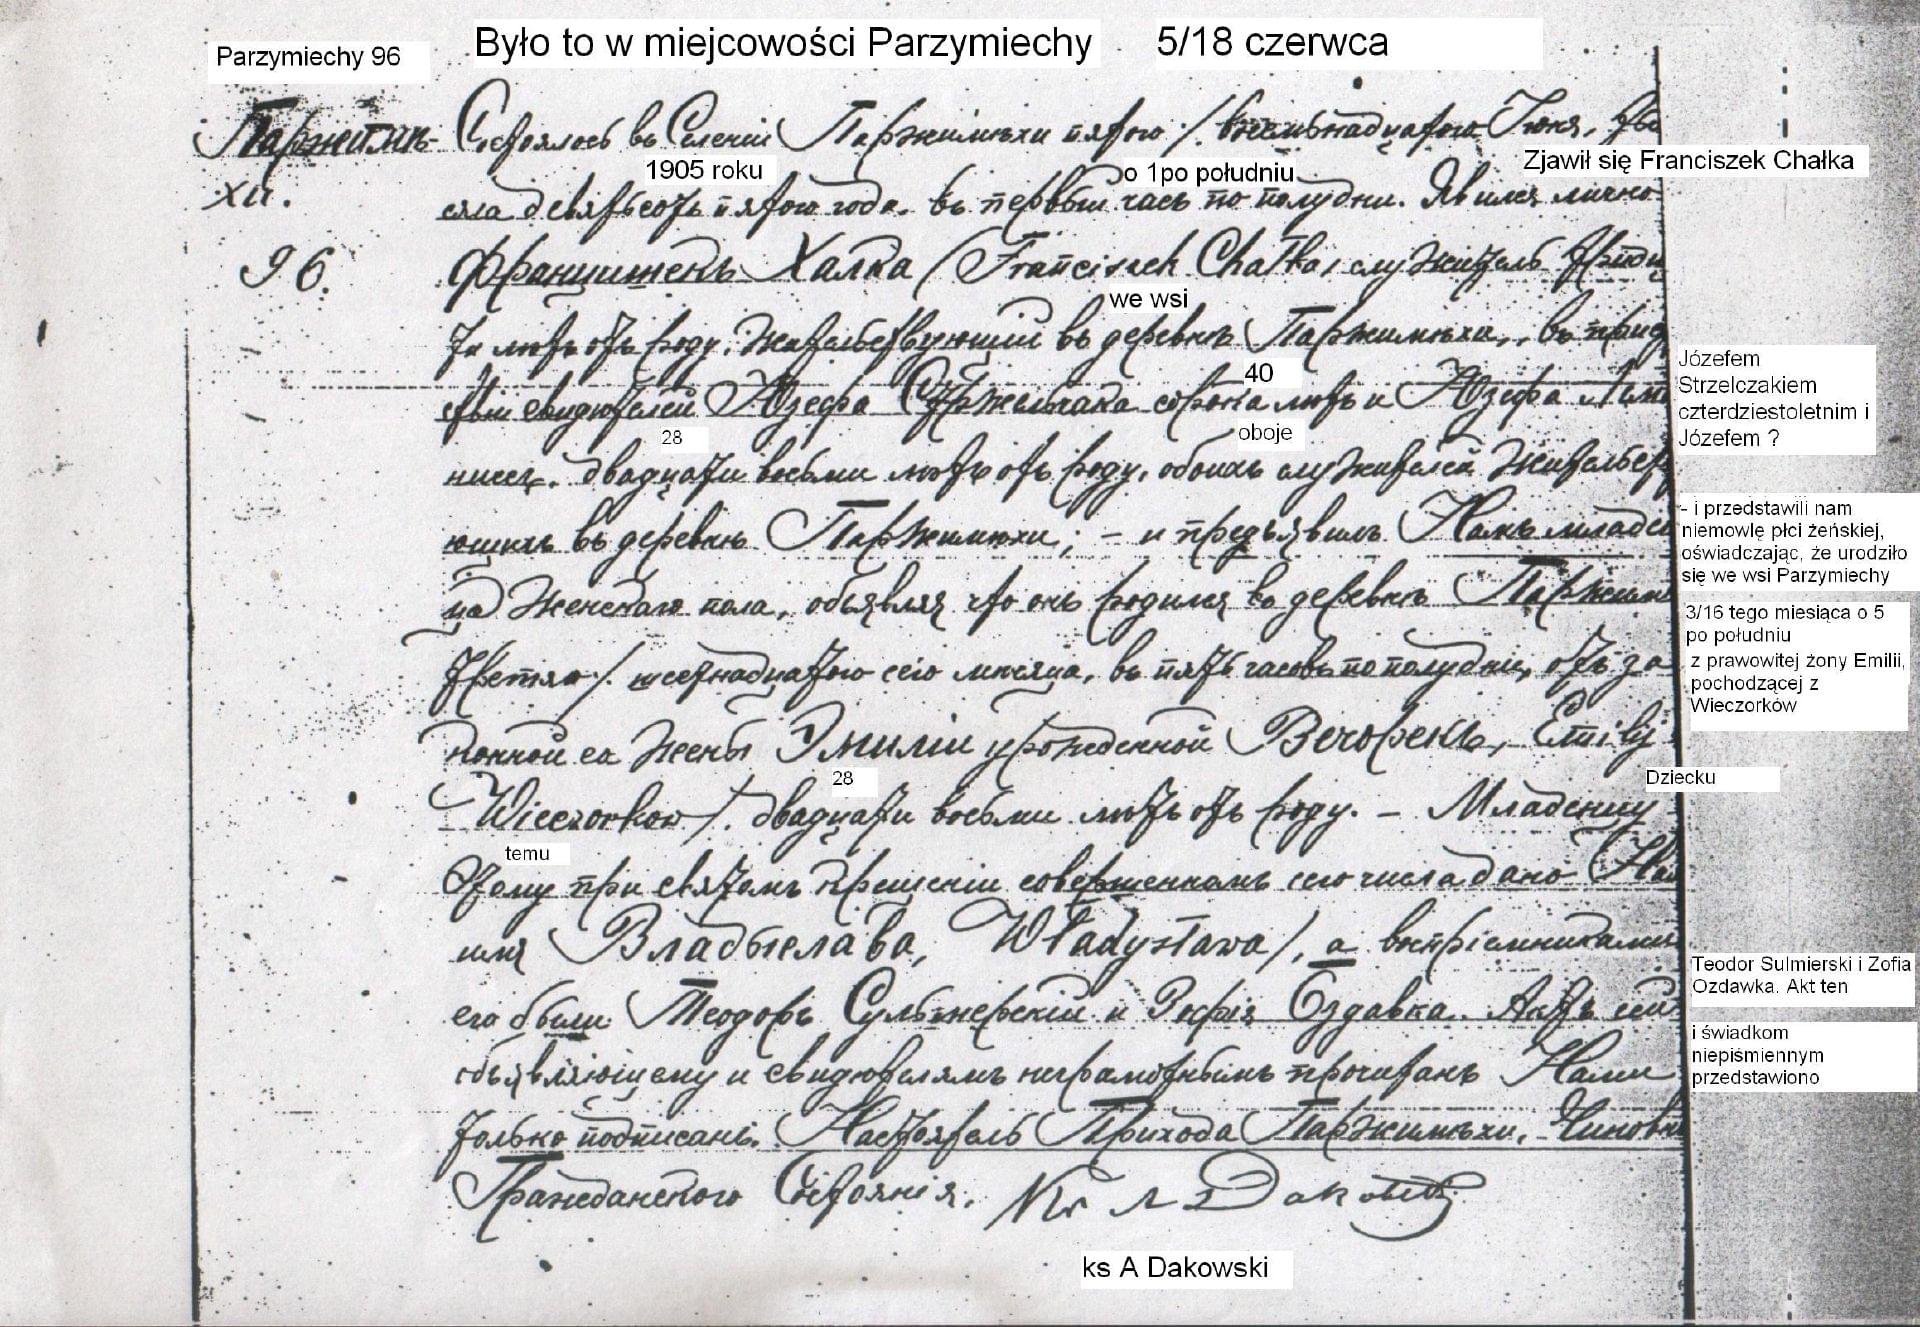 Parzymiechy 96
Było to w miejcowości Parzymiechy 5/18 czerwca
Паржимѣ-
хи.
96.
Состоялось въ Селеніи Паржимѣхи пятого /. восемьнадцатого Іюня, ты
1905 roku
o 1po południu
Zjawił się Franciszek Chałka
сяча девятьсотъ пятого года, въ первый часъ по полудни. Явился лично
Францишекъ Халка / Franciszek Chałka, служитель тридц
we wsi
ти лѣтъ отъ роду, жительствующій въ деревнѣ Паржимѣхи, въ прис
40
Józefem
Strzelczakiem
czterdziestoletnim i
Józefem ?
свіи свидѣтелей Юзефа Стржельчака сорока лѣтъ и Юзефа
28
oboje
двадцати восьми лѣтъ отъ роду, обоихъ служителей жительств
- i przedstawili nam
niemowlę płci żeńskiej,
oświadczając, że urodziło
się we wsi Parzymiechy
ющихъ въ деревнѣ Паржимѣхи; – и предъявилъ Намъ младен
ца женскаго пола, объявляя что онъ родился въ деревнѣ Паржим
3/16 tego miesiąca o 5
po południu
z prawowitej żony Emilii,
pochodzącej z
Wieczorków
третяго /. шестнадцатого сего мѣсяца, въ пять часовъ по полудни, отъ за
конной его жены Эмиліи урожденной Вечорекъ, Emilij
28
Dziecku
Wieczorkow /. двадцати восьми лѣтъ отъ роду. – Младенцу
temu
Этому при святомъ крещеніи совершенномъ сего числа дано
имя Владыслава, Władysława /, а воспріемниками
Teodor Sulmierski i Zofia
Ozdawka. Akt ten
его были Теодоръ Сульмерскій и Зофія Оздавка. Актъ сей
i świadkom
niepiśmiennym
przedstawiono
объявляющему и свидѣтелямъ неграмотнымъ прочитанъ Нами
только подписанъ. Настоятель Прихода Паржимѣхи, Чиновн
Гражданского Состоянія.
ks A Dakowski